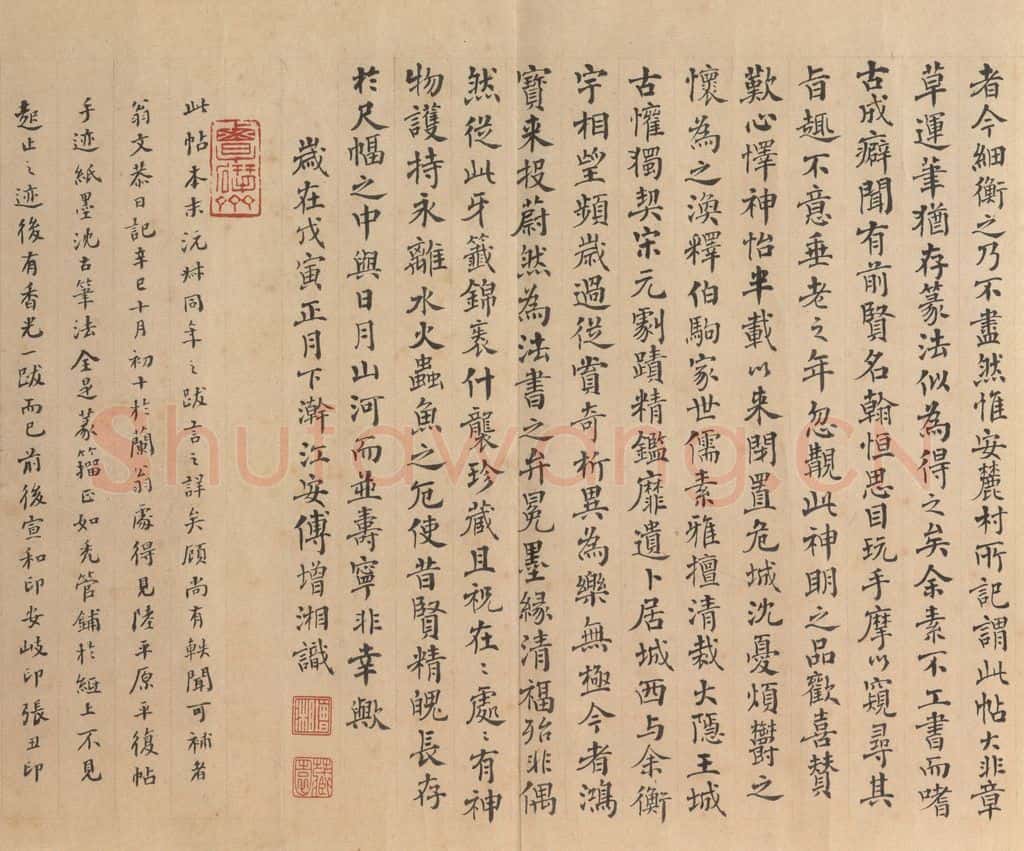 者今細衡之乃不盡然惟安麓村所記謂此帖大非章
草運筆猶存篆法似為得之矣余素不工書而嗜
古成癖聞有前賢名翰恒思目玩手摩以窺尋其
旨趣不意垂老之年忽覩此神明之品歡喜贊
歎心懌神怡半載以來閉置危城沈憂煩鬱之
懷為之渙釋伯駒家世儒素雅擅清裁大隱王城
古懽獨契宋元劇蹟精鑑靡遺卜居城西与余衡
宇相望頻歲過從賞奇析異為樂無極今者鴻
寶來投蔚然為法書之弁冕墨緣清福殆非偶
然從此牙籤錦裹什襲珍藏且祝在〻處〻有神
物護持永離水火蟲魚之厄使昔賢精魄長存
於尺幅之中與日月山河而並壽寧非幸歟
歲在戊寅正月下澣江安傅增湘識
此帖本末沅叔同年之跋言之詳矣顧尚有軼聞可補者
翁文恭日記辛巳十月初十於蘭翁處得見陸平原平復帖
手迹紙墨沈古筆法全是篆籀正如禿管鋪於紙上不見
起止之迹後有香光一跋而已前後宣和印安岐印張丑印
Shufawang.CN